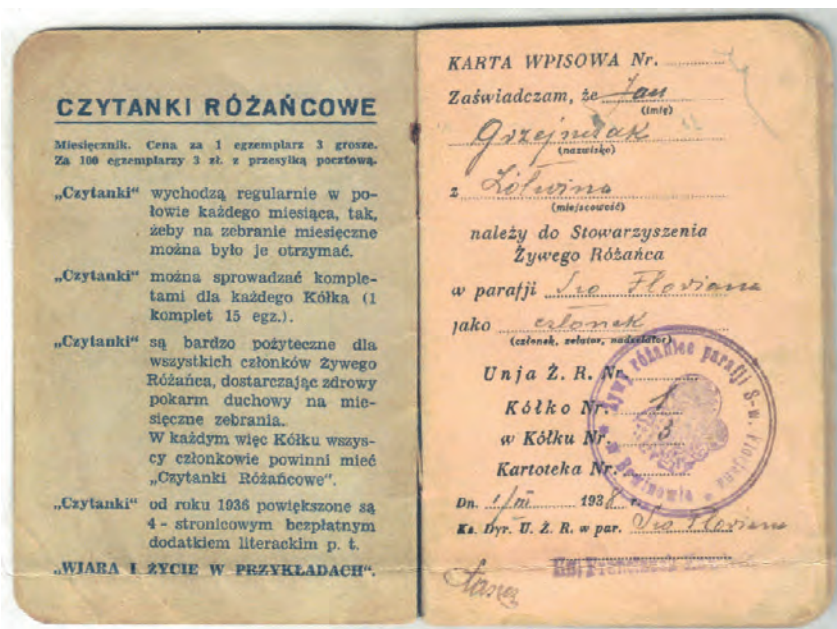 CZYTANKI RÓŻAŃCOWE
Miesięcznik. Cena za 1 egzemplarz 3 grosze.
Za 100 egzemplarzy 3 zł. z przesyłką pocztową.
„Czytanki“ wychodzą regularnie w po-
łowie każdego miesiąca, tak,
żeby na zebranie miesięczne
można było je otrzymać.
„Czytanki“ można sprowadzać komple-
tami dla każdego Kółka (1
komplet 15 egz.).
„Czytanki“ są bardzo pożyteczne dla
wszystkich członków Żywego
Różańca, dostarczając zdrowy
pokarm duchowy na mie-
sięczne zebrania.
W każdym więc Kółku wszys-
cy członkowie powinni mieć
„Czytanki Różańcowe“.
„Czytanki“ od roku 1936 powiększone są
4 - stronicowym bezpłatnym
dodatkiem literackim p. t.
„WIARA I ŻYCIE W PRZYKŁADACH“.
KARTA WPISOWA Nr.
Zaświadczam, że Jan
(imię)
Grzejszczak
(nazwisko)
z Żółwina
(miejscowość)
należy do Stowarzyszenia
Żywego Różańca
w parafji Św Floriana
jako członek
(członek, zelator, nadzelator)
Unja Ż. R. Nr.
Kółko Nr. 1
w Kółku Nr. 3
Kartoteka Nr.
Dn. 1/III 1938 r.
Ks. Dyr. U. Ż. R. w par. Św Floriana
Ks. Franciszek
Żywy różaniec parafji Ś-w. Florjana
w Brwinowie